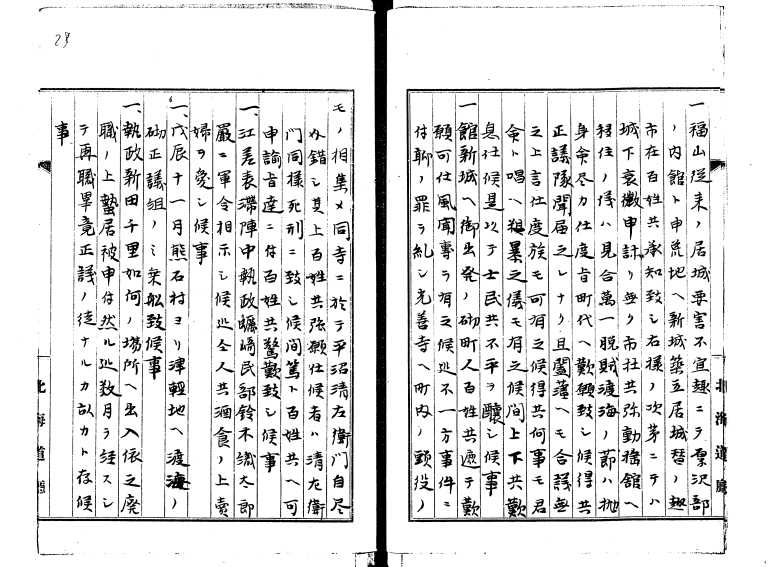 一福山従来ノ居城要害不宜趣ニテ厚沢部
ノ内館ト申荒地ヘ新城築立居城替ノ趣
市在百姓共承知致シ右様ノ次第ニテハ
城下衰微申訳モ無ク市社共弥動揺館ヘ
移住ノ儀ハ見合萬一脱賊渡海ノ節ハ抛
身命尽力仕度旨町代ヘ歎願致シ候得共
正議隊聞届之レナク且藩ヘモ合議無
之上言仕度族モ可有之候得共何事モ君
命ト唱ヘ狼暴之儀モ有之候間上下共歎
息仕候是以テ士民共不平ヲ醸シ候事
一館新城ヘ御出発ノ砌町人百姓共遮テ歎
願可仕風聞専ラ有之候処不一方事件ニ
付聊ノ罪ヲ糺シ光善寺ヘ町内ノ頭役ノ
モノ相集メ同寺ニ於テ平沼清左衛門自尽
為錯シ其上百姓共強願仕候者ハ清左衛
門同様死刑ニ致シ候間篤ト百姓共ヘ可
申諭旨達ニ付百姓共驚歎致シ候事
一、江差表滞陣中執政蠣崎民部鈴木織太郎
厳ニ軍令相示シ候処全人共酒食ノ上売
婦ヲ愛シ候事
一、戊辰十一月熊石村ヨリ津軽地ヘ渡海ノ
砌正議組ノミ乗船致候事
一、執政新田千里如何ノ場所ヘ出入依之廃
職ノ上蟄居被申付然ル処数月ヲ経スシ
テ再職畢竟正議ノ徒ナルカ故カト存候
事
北海道庁
北海道庁
24